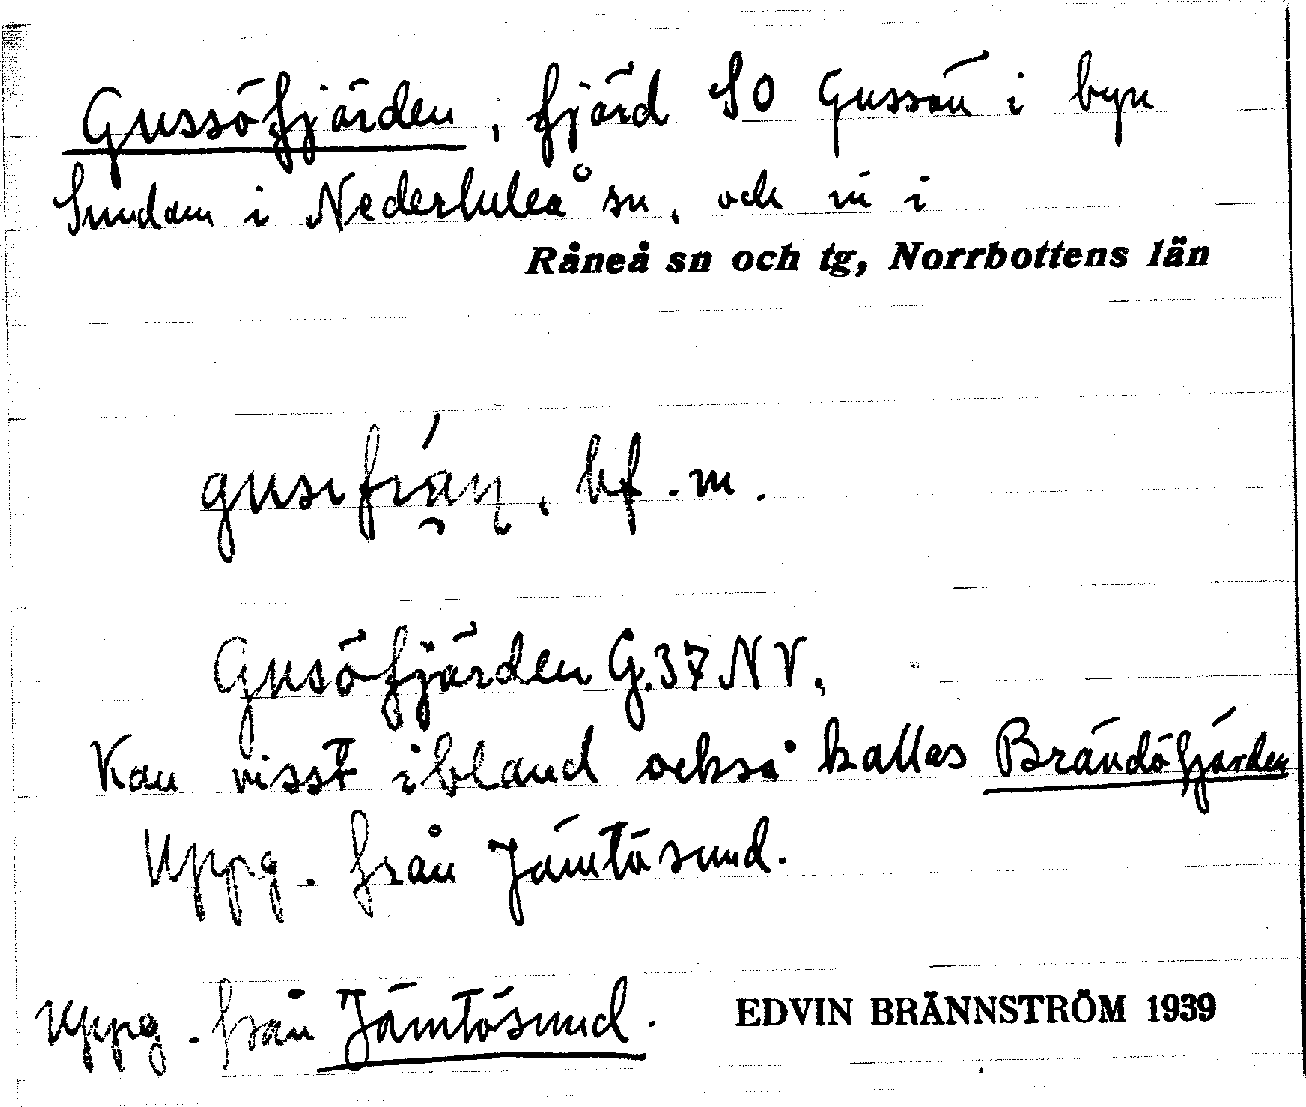 Gussöfjärden, fjärd SO Gussön i byn
Sundom i Nederluleå sn, och in i
Råneå sn och tg, Norrbottens län
bf. m.
Gusöfjärden G.37 NV.
Kan visst ibland också kallas Brändöfjärden
Uppg. från Jämtösund.
Uppg. från Jämtösund. EDVIN BRÄNNSTRÖM 1939